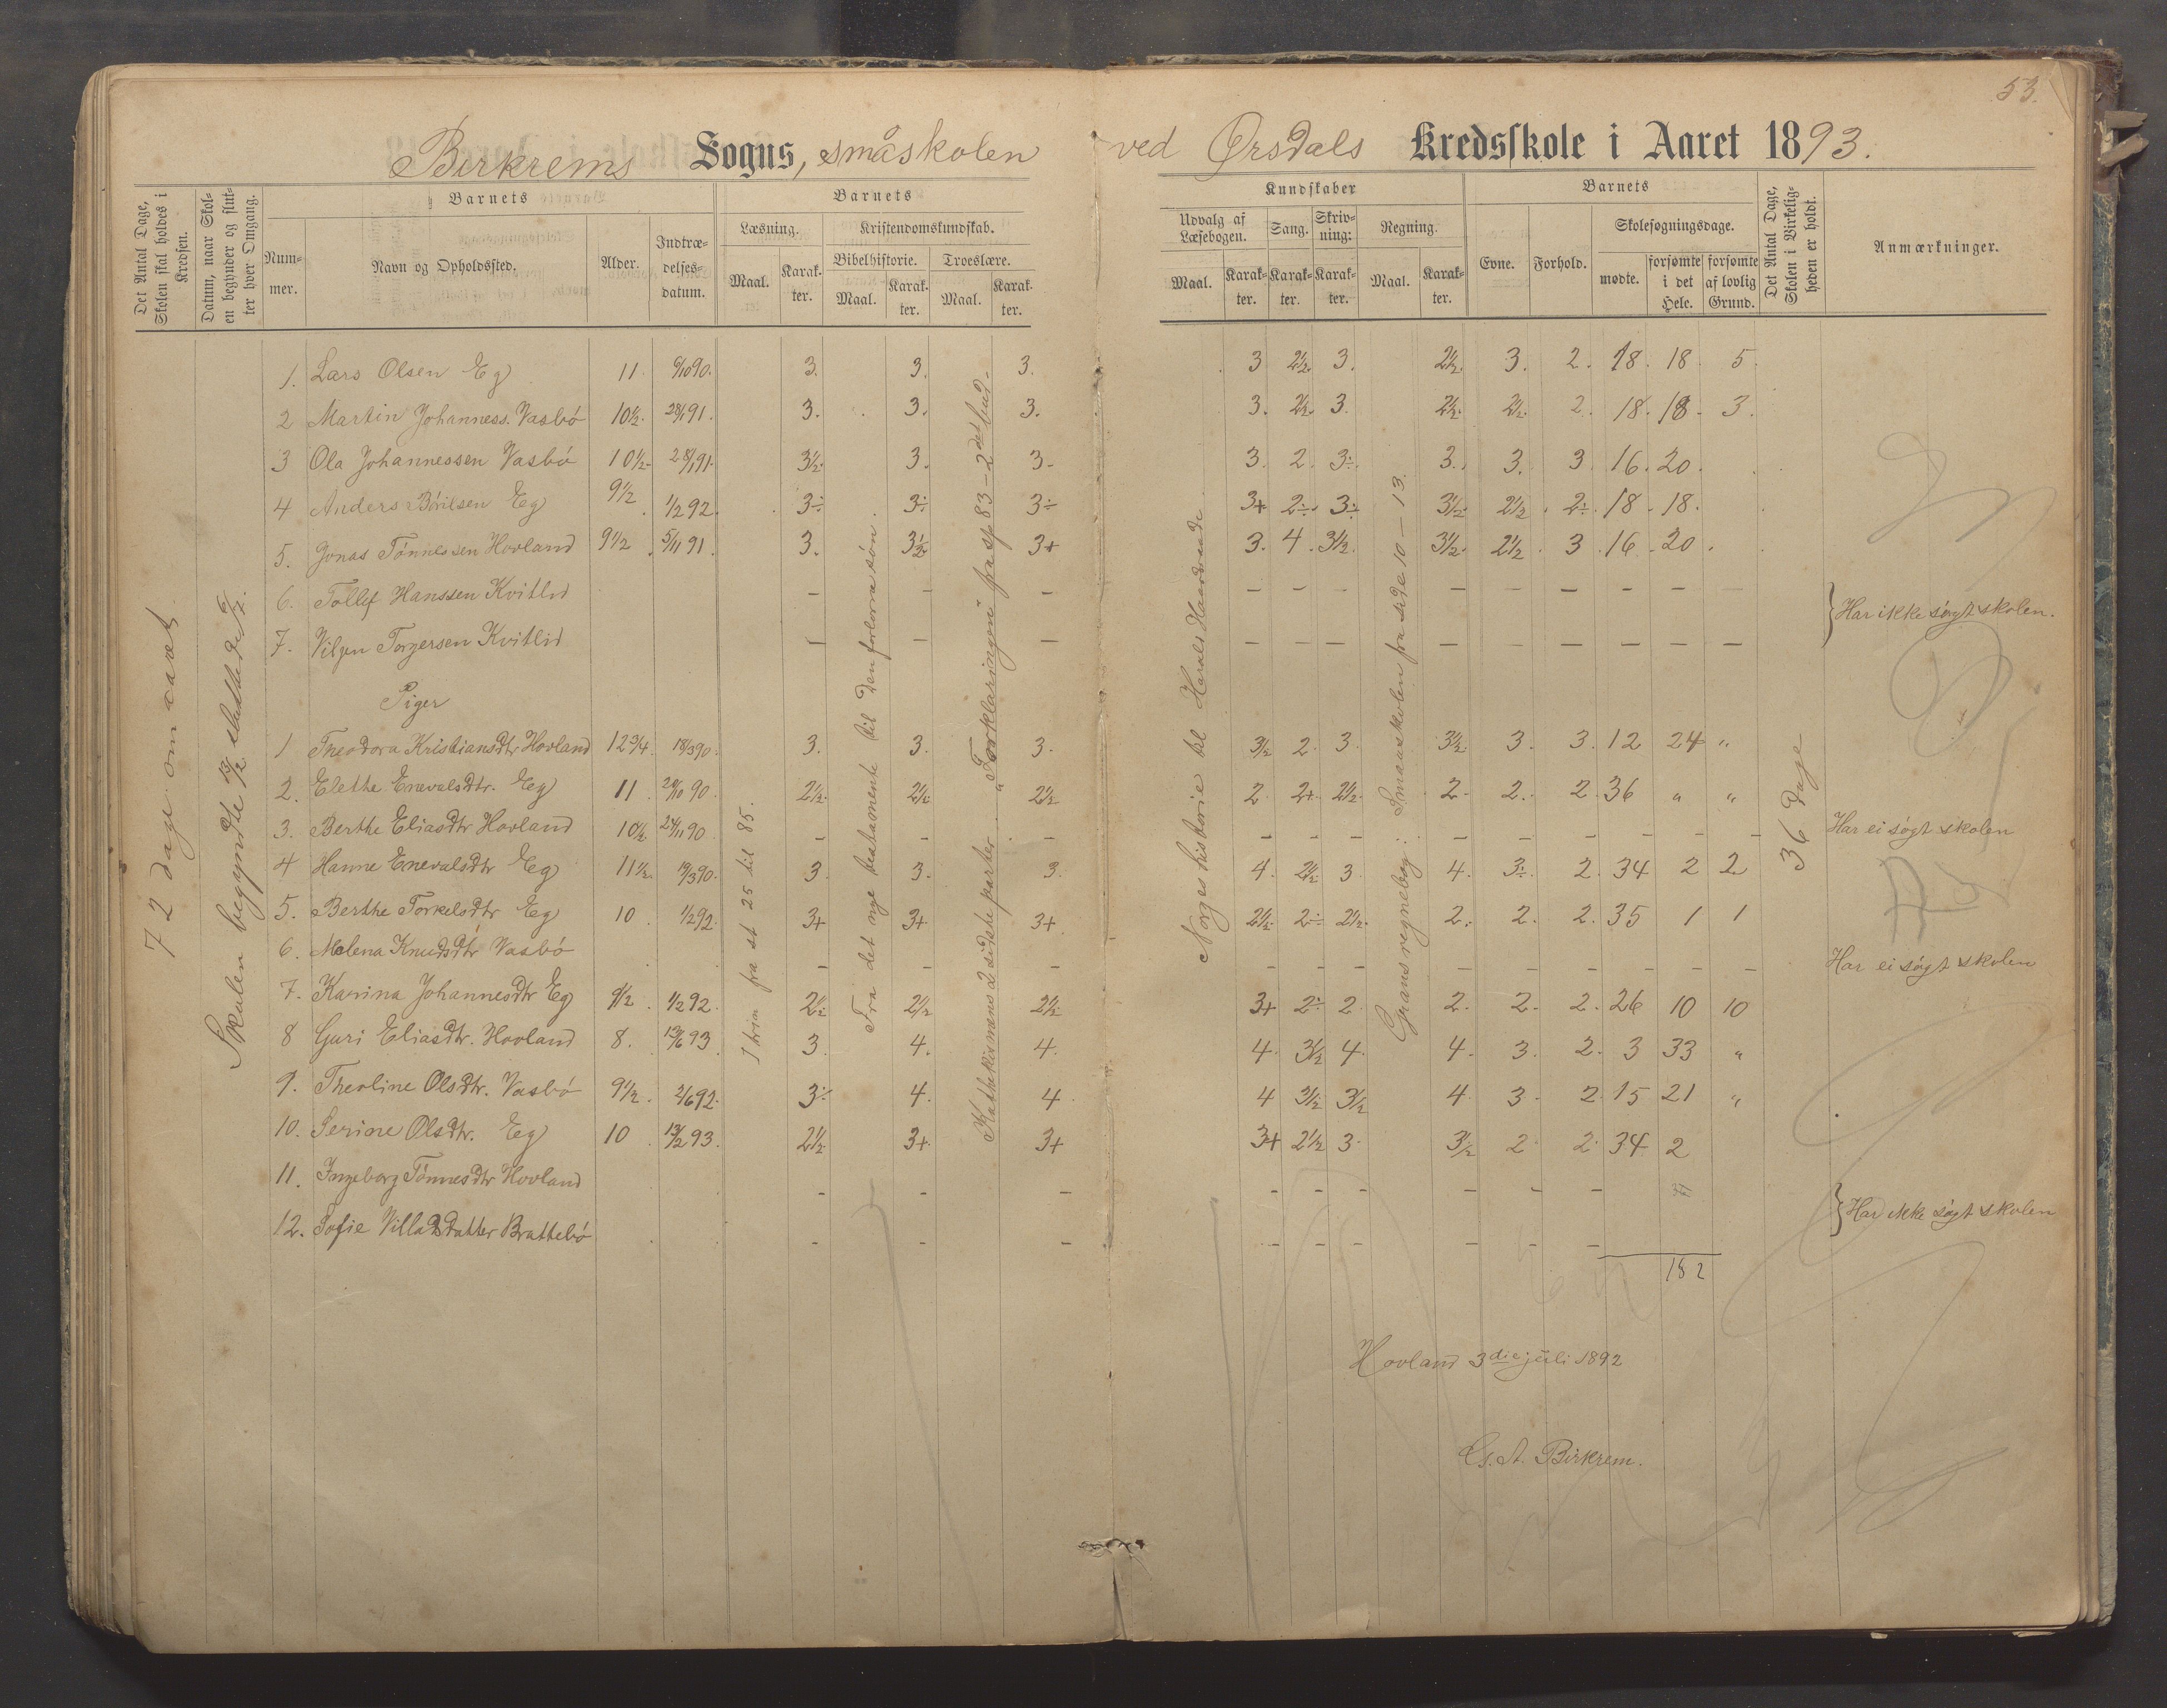 53.
Birkrems Sogns, småskolen ved Ørsdals Kredsskole i Aaret 1893.
Det Antal Dage, Skolen skal holdes i Kredsen.
Datum, naar Skolen begynder og slutter hver Omgang.
Barnets
Nummer.
Navn og Opholdssted.
Alder.
Indtrædelsesdatum.
Barnets
Læsning.
Maal.
Karakter.
Kristendomskundskab.
Bibelhistorie.
Maal.
Karakter.
Troeslære.
Maal.
Karakter.
Kundskaber
Udvalg af Læsebogen.
Maal.
Karakter.
Sang.
Karakter.
Skrivning:
Karakter.
Regning.
Maal.
Karakter.
Barnets
Evne.
Forhold.
Skolesøgningsdage.
mødte.
forsømte i det Hele.
forsømte af lovlig Grund.
Det Antal Dage, Skolen i Virkeligheden er holdt.
Anmærkninger.
72 dage om aaret.
Skolen begyndte 13/2 sluttede
I tria fra st 25 til 85.
Fra det nye testamente til Den forlorne søn.
Katthekismens 2 sidste parter. "Forklaringen" fra sp 83 – 2det bud –
Norges historie til Haralds Haardraade.
Grans regnebog: Smaaskolen fra side 10 – 13.
36 dage
1. Lars Olsen Eg 11 6/10 90. 3. 3. 3. 3 2½. 3. 2½. 3. 2. 18. 18. 5.
2 Martin Johanness. Vasbö 10½. 28/1 91. 3. 3. 3. 3. 2½. 3. 2½. 2½. 2. 18. 18. 3.
3 Ola Johannessen Vasbö 10½. 28/1 91. 3½. 3. 3. 3. 2. 3÷. 3. 3. 3. 16. 20.
4 Anders Eg 9½ ½ 92. 3÷ 3÷ 3÷ 3+ 2÷. 3÷ 3½. 2½. 2÷. 18. 18.
5. Jonas Tönnessen Hovland 9½. 5/11 91. 3. 3½. 3+ 3. 4. 3½. 3½. 2½. 3. 16. 20.
6. Tollef Hanssen Kvitlid – – – – – – – – – – – –
7. Vilgen Torgersen Kvitlid – – – – – – – – – – – –
} Har ikke søgt skolen.
Piger
1 Theodora Kristiansdtr Hovland 12¾. 18/3 90. 3. 3. 3. 3½ 2. 3. 3½. 3. 3. 12 24 "
2. Elethe Enevalsdtr. Eg 11. 20/10 90. 2½. 2½. 2½ 2. 2+ 2½. 2. 2. 2. 36 " "
3. Berthe Eliasdtr Hovland 10½. 24/11 90 – – – – – – – – – – – – Har ei søgt skolen
4 Hanne Enevalsdtr Eg 11½. 19/3 90. 3. 3. 3. 4. 2½ 3 4. 3÷. 2. 34 2 2
5. Berthe Torkelsdtr Eg 10. ½ 92. 3+ 3+ 3+ 2½. 2÷ 2½. 2. 2. 2. 35 1 1
6. Melena Knudsdtr Vasbö – – – – – – – – – – – – Har ei søgt skolen
7. Karina Johannesdtr Eg 9½. ½ 92. 2½ 2½ 2½ 3+ 2÷ 2. 2. 2. 2. 26 10 10
8 Guri Eliasdtr. Hovland 8. 13/6 93. 3. 4. 4. 4. 3½ 4. 4. 3. 2. 3 33 "
9. Theoline Olsdtr. Vasbö 9½. 2/6 92. 3÷ 4. 4 4 3½ 3½ 4 3. 2. 15 21 "
10. Serine Olsdtr. Eg 10. 13/2 93. 2½. 3+ 3+ 3+ 2½ 3. 3½ 2 2. 34 2
11. Ingeborg Tönnesdtr Hovland – – – – – – – – –
12. Sofie Villadsdatter Brattebö – – – – – – – – –
} Har ikke søgt skolen
182
Hovland 3die juli 1892
A. Birkrem.